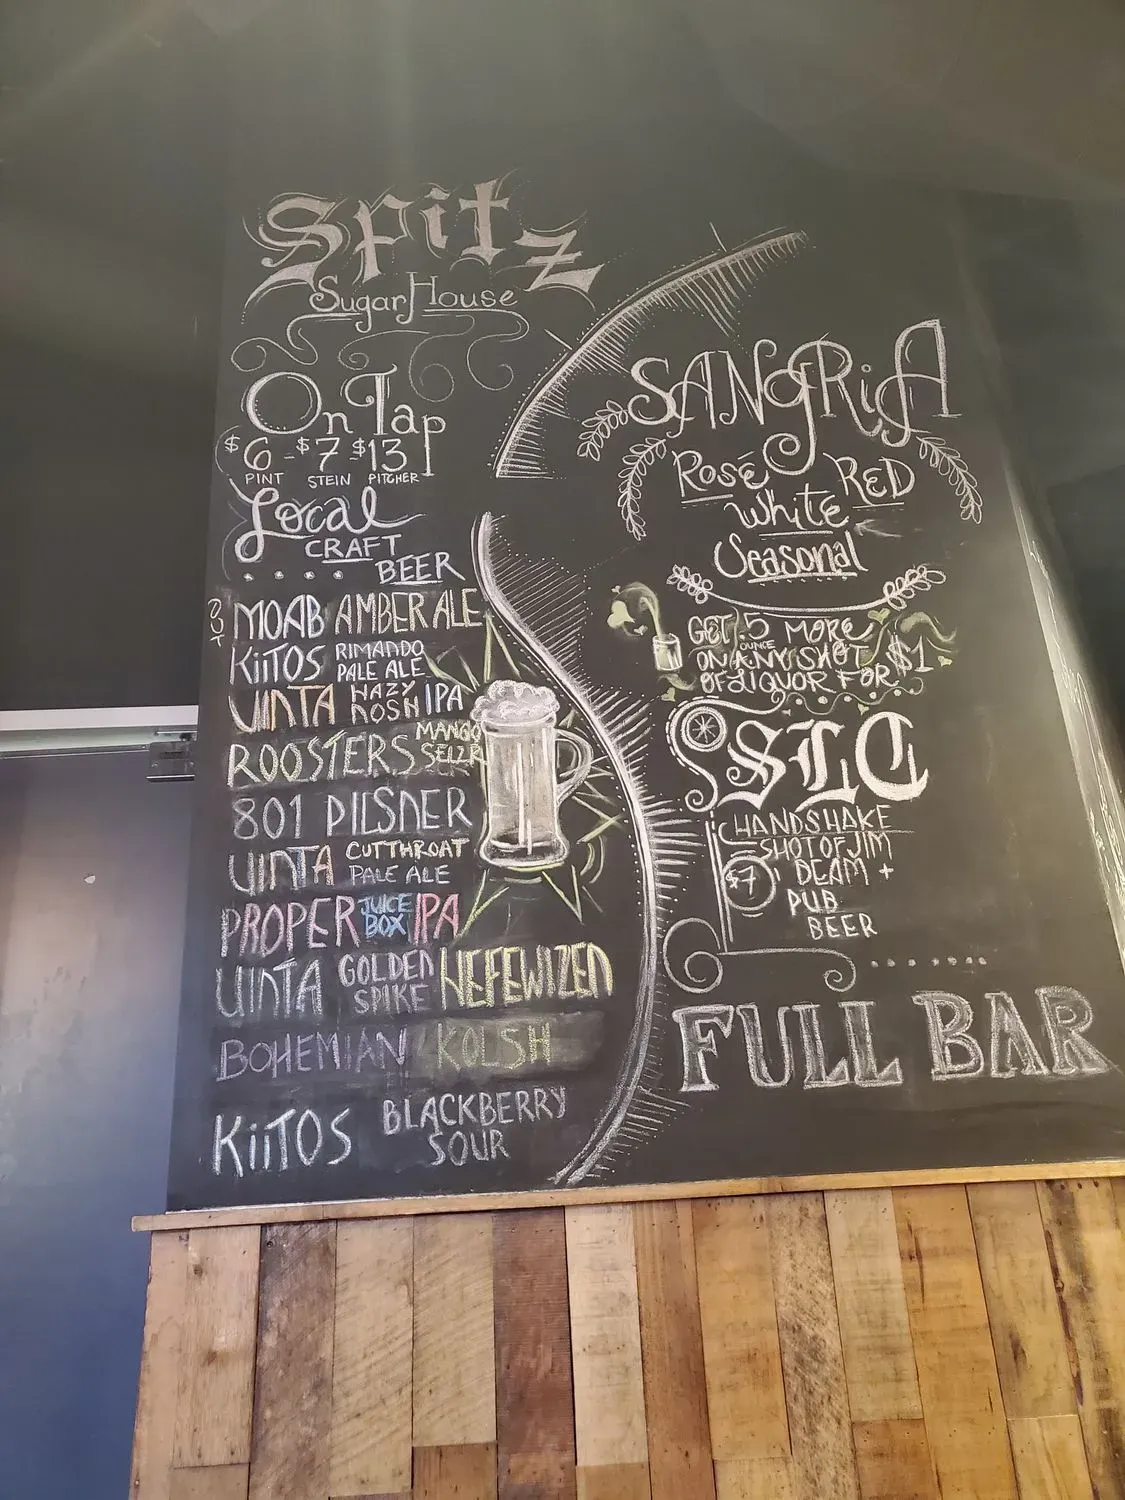 Spitz
Sugar House
On Tap
$6 - $7 $13
PINT STEIN PITCHER
Local
CRAFT
BEER
OUT
MOAB AMBER ALE
KiiTOS RIMANDO
PALE ALE
UINTA HAZY
NOSH IPA
ROOSTERS MANGO
SELZR
801 PILSNER
UINTA CUTTHROAT
PALE ALE
PROPER JUICE
BOX IPA
UINTA GOLDEN
SPIKE HEFEWIZEN
BOHEMIAN KOLSH
KiiTOS BLACKBERRY
SOUR
SANGRiA
Rosé RED
White
Seasonal
GET .5 MORE
OUNCE
ON ANY SHOT
OF LIQUOR FOR $1
SLC
HANDSHAKE
SHOT OF JIM
$7 BEAM +
PUB
BEER
FULL BAR